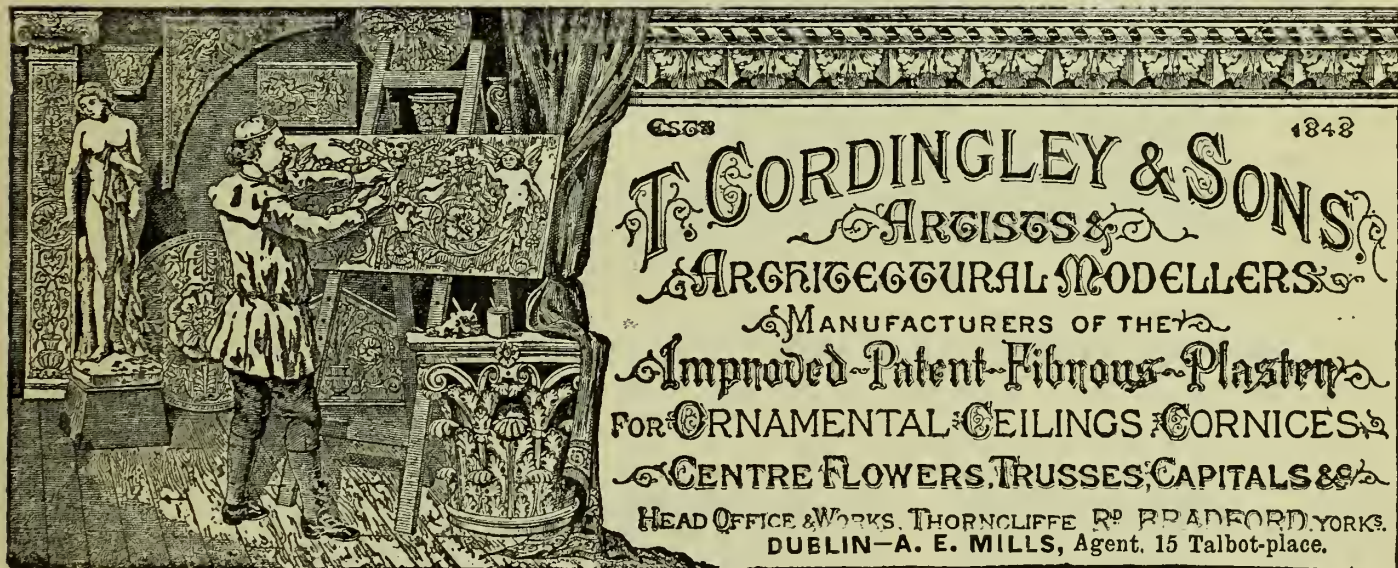 ESTD 1848
T. CORDINGLEY & SONS,
ARTISTS &
ARCHITECTURAL MODELLERS
MANUFACTURERS OF THE
Improved Patent Fibrous Plaster
FOR ORNAMENTAL CEILINGS CORNICES
CENTRE FLOWERS, TRUSSES, CAPITALS &c
HEAD OFFICE & WORKS, THORNCLIFFE RD BRADFORD. YORKS.
DUBLIN—A. E. MILLS, Agent. 15 Talbot-place.